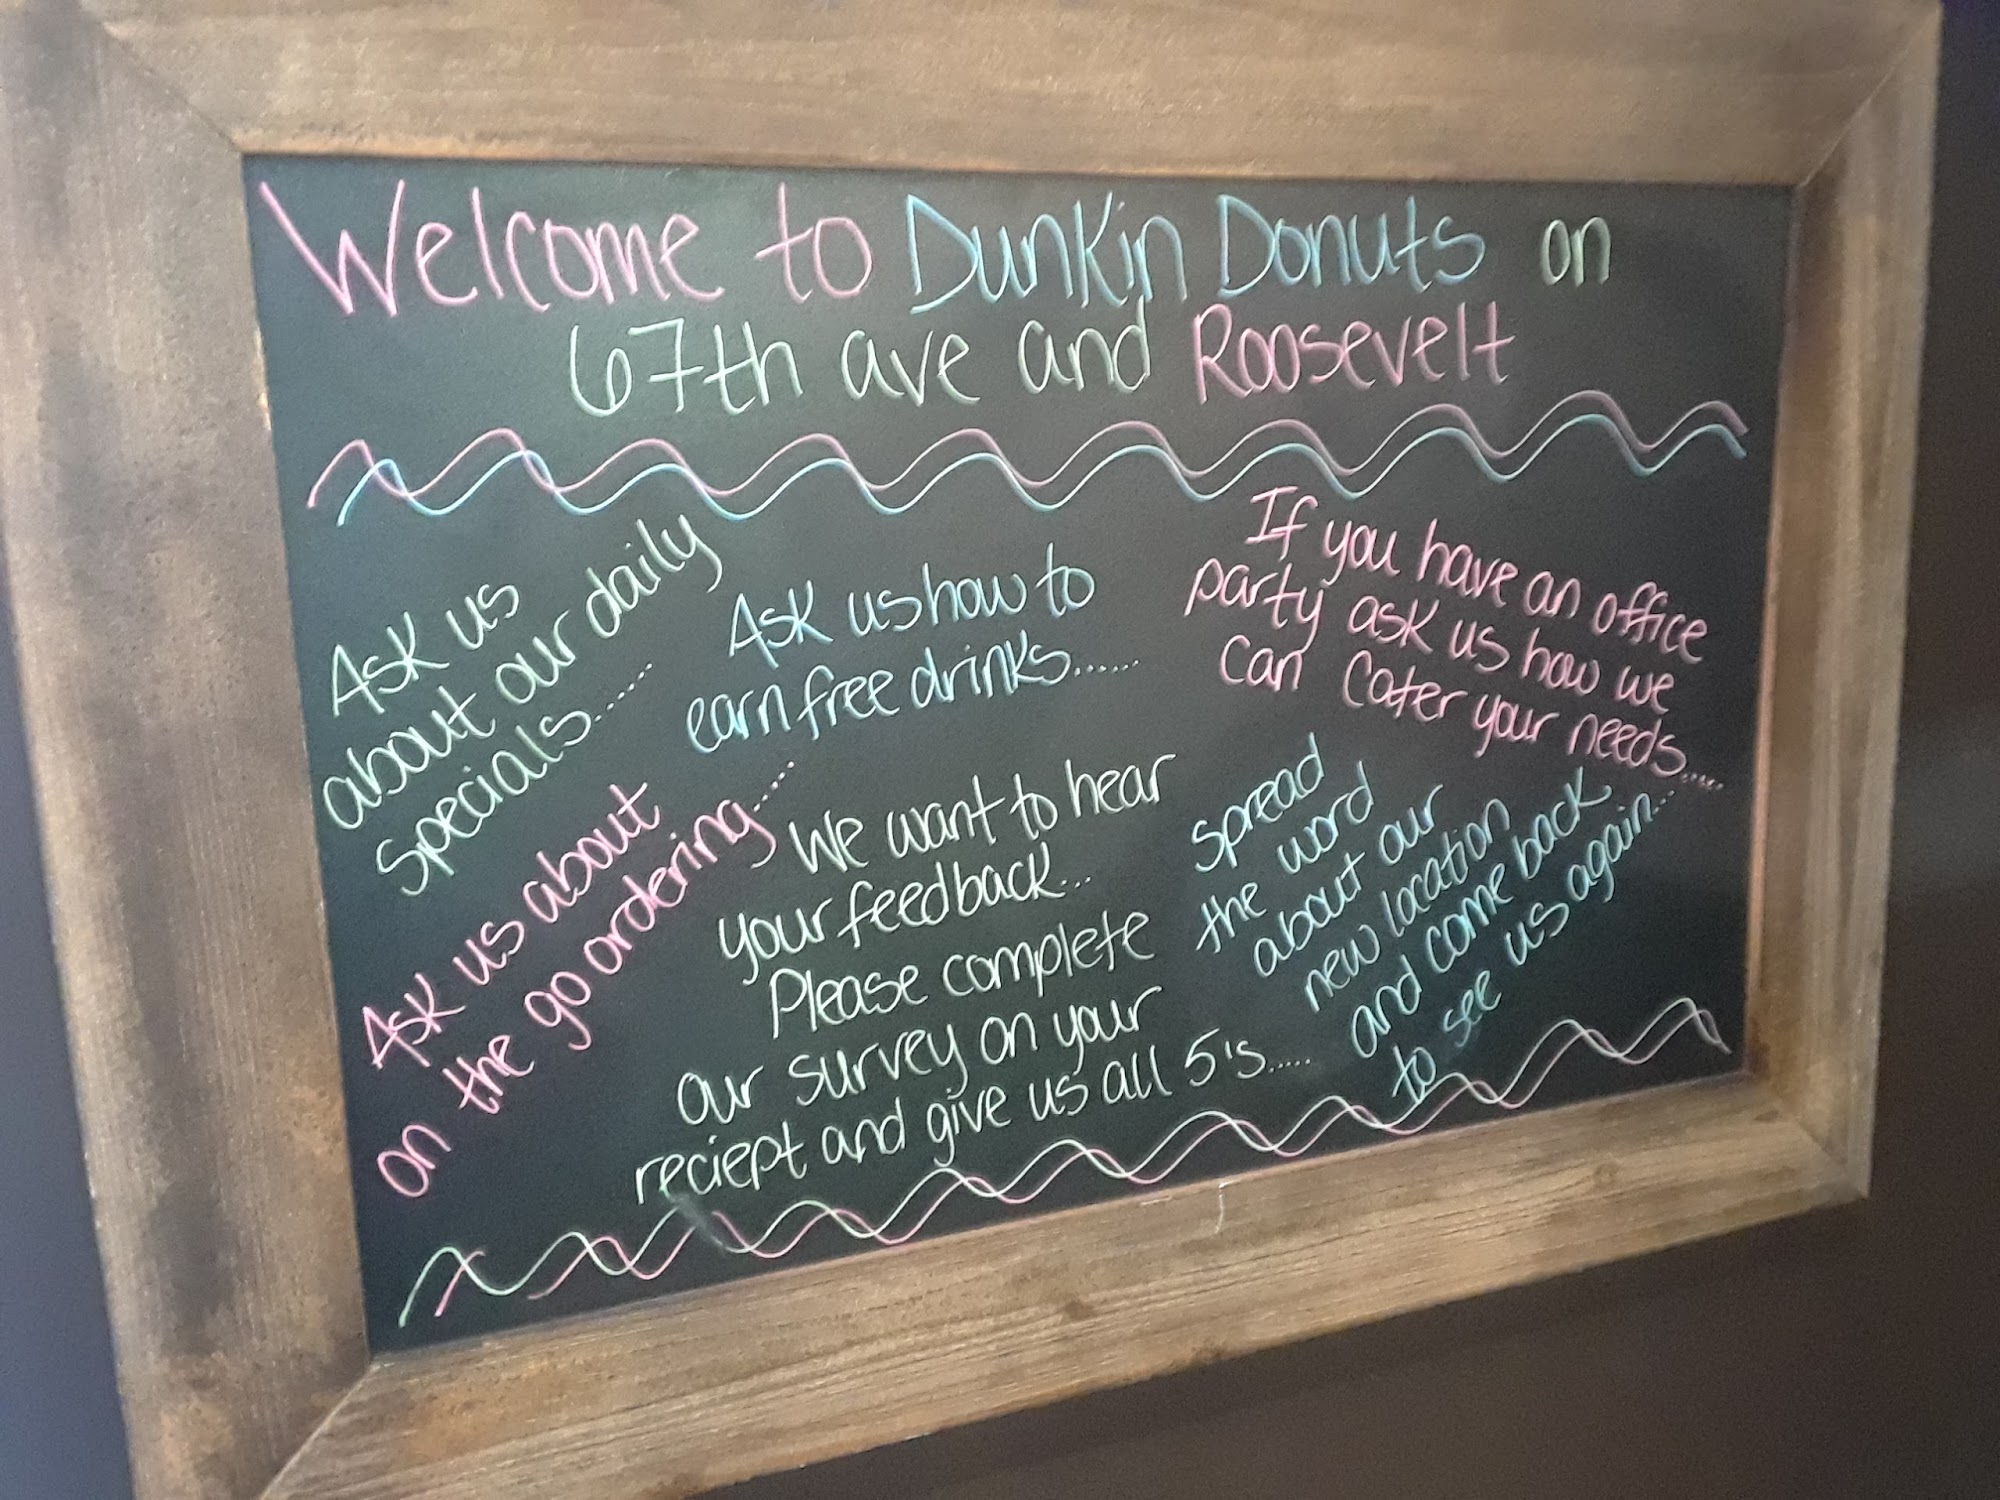 Welcome to Dunkin Donuts on
67th ave and Roosevelt
Ask us
about our daily
specials......
Ask us how to
earn free drinks......
If you have an office
party ask us how we
can cater your needs.....
Ask us about
on the go ordering.....
We want to hear
your feedback...
Please complete
our survey on your
reciept and give us all 5's.....
spread
the word
about our
new location
and come back
to see us again...